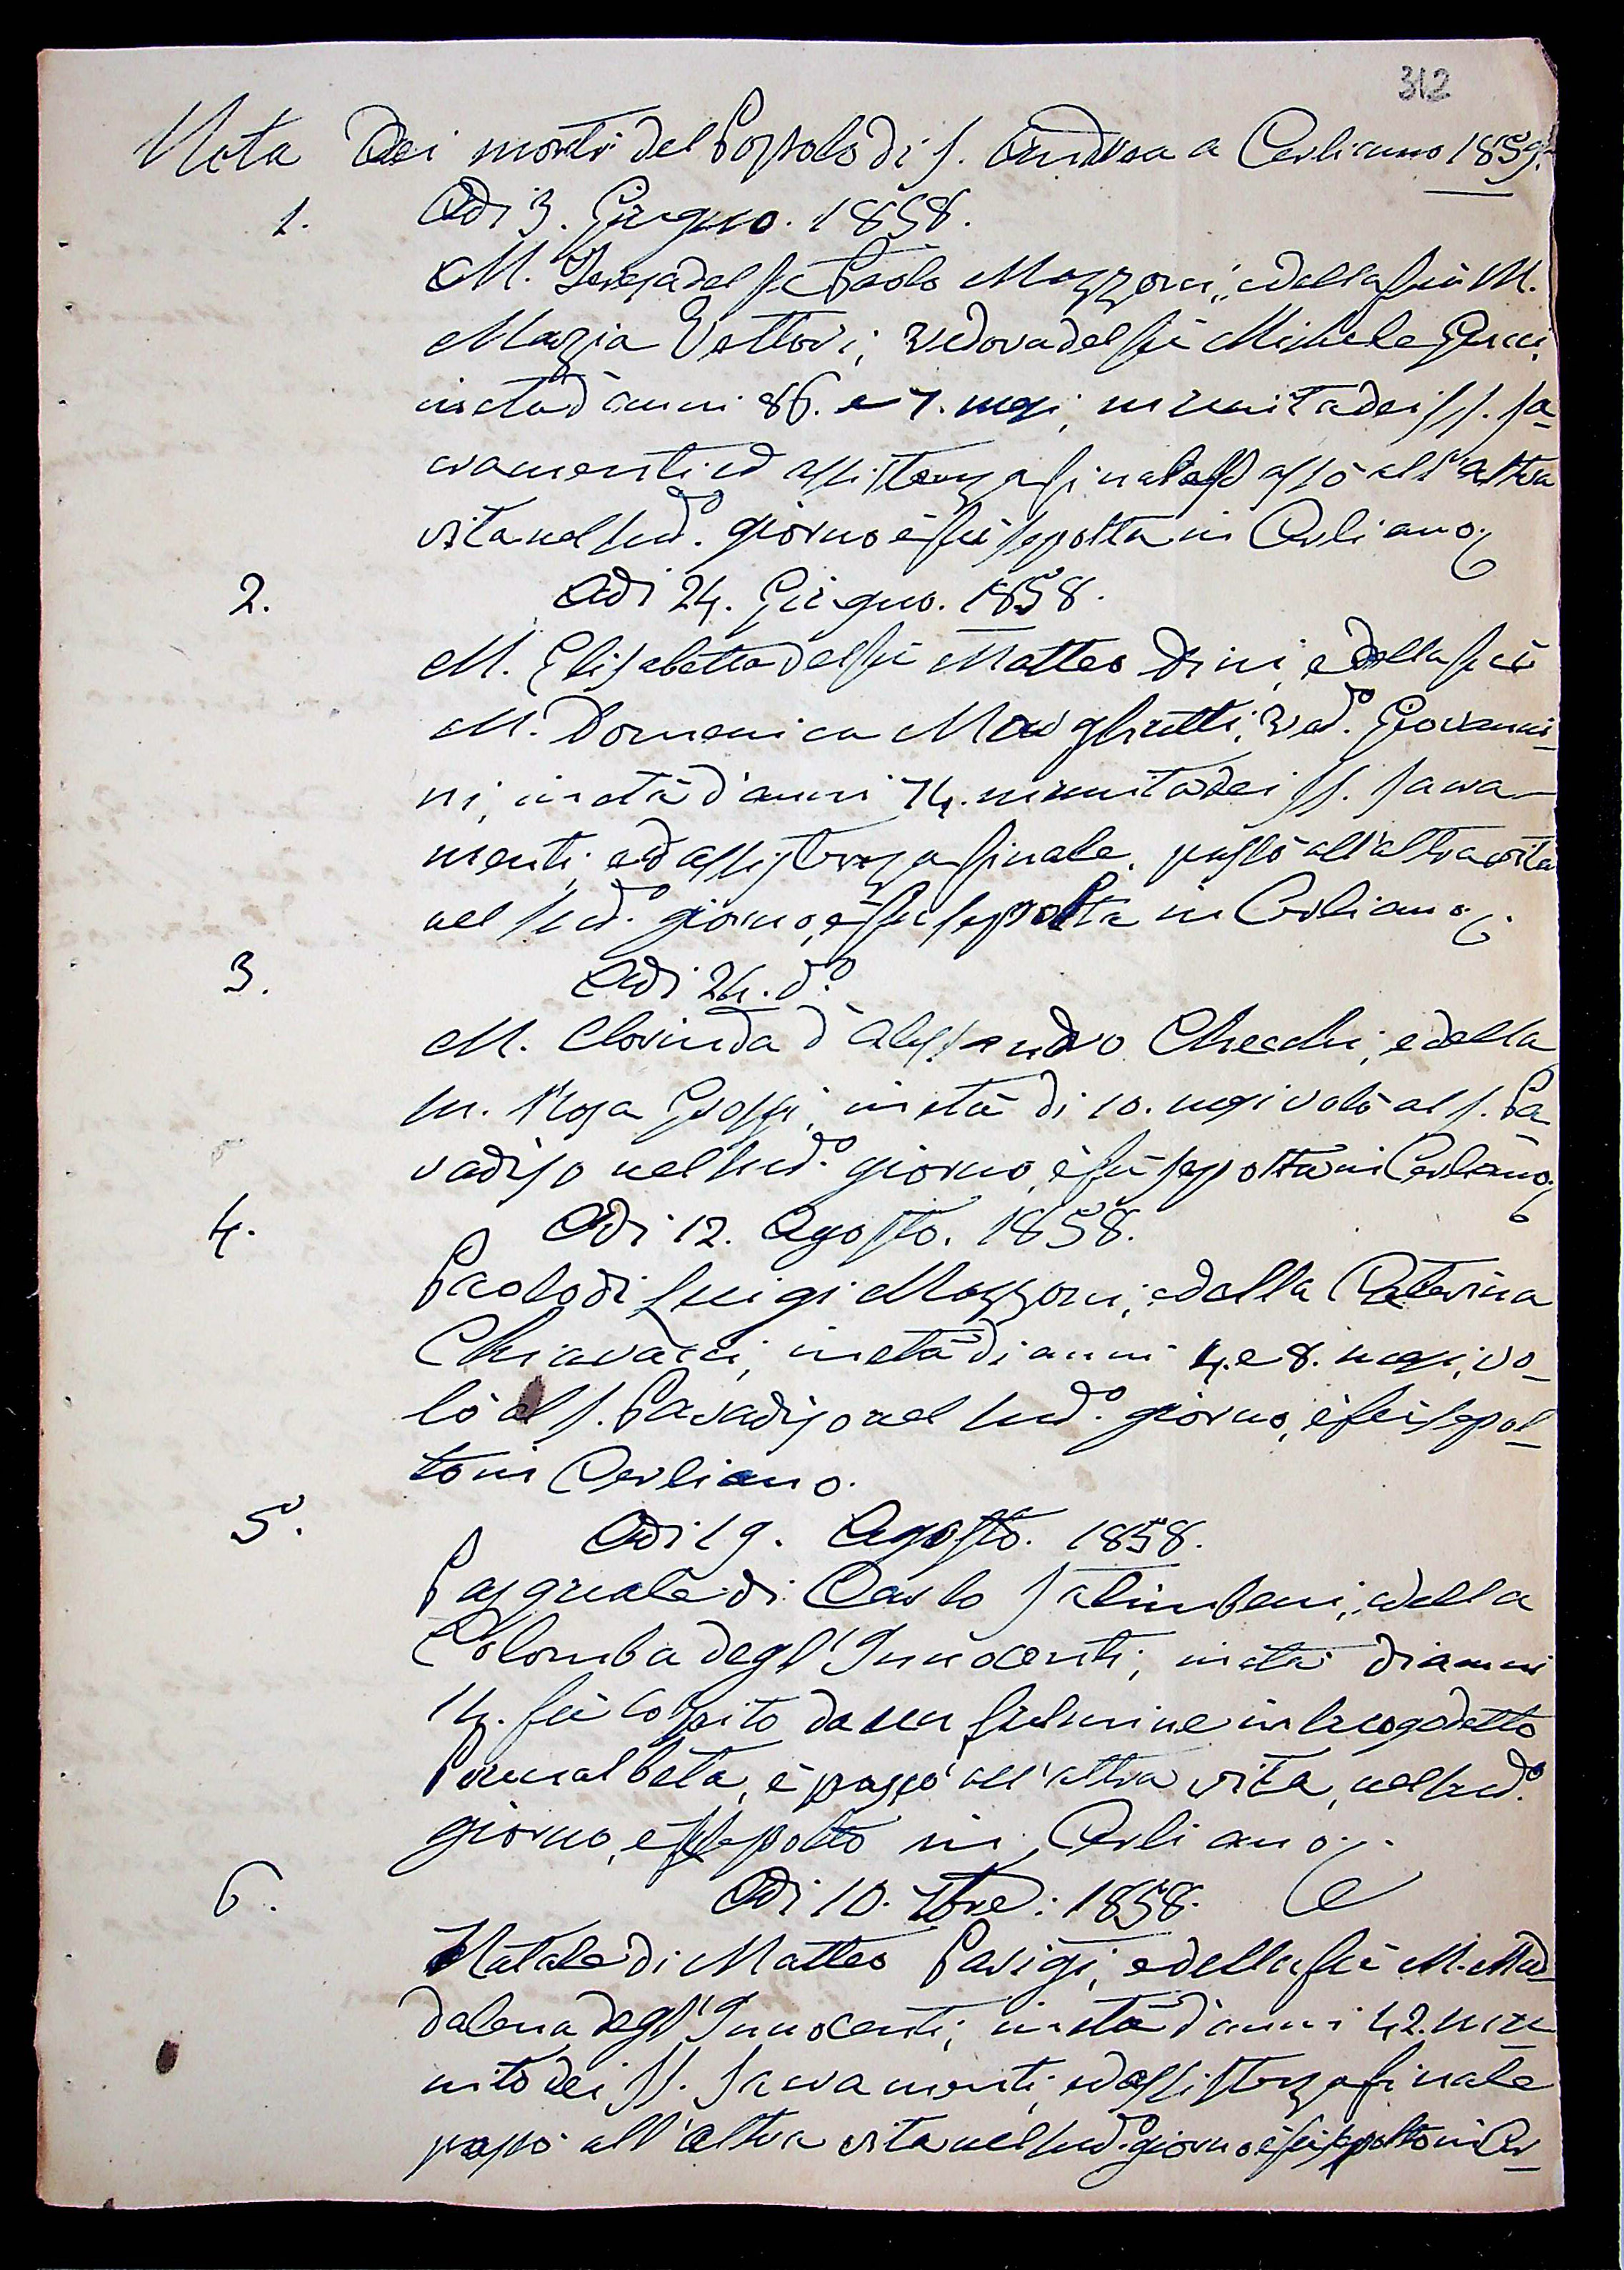 312
Nota Dei morti del Popolo di S. Andrea a Cerliano 1859.
1. Adi 3. Giugno. 1858.
M. Teresa del fù Paolo Mozzoni, e della fù M.
Maria Vettori, vedova del fù Michele
in età d'anni 86. e 7. mesi, munita dei SS. Sa-
cramenti ed assistenza finale passò all'altra
vita nel sud.o giorno è fù sepolta in Cerliano.
2. Adi 24. Giugno. 1858.
M. Elisabetta del fù Matteo Dini, e della fù
M. Domenica Margheritti, ved.o Giovanni-
ni, in età d'anni 74. munita dei SS. Sacra-
menti, ed assistenza finale, passò all'altra vita
nel sud.o giorno, è fù sepolta in Cerliano.
3. Adi 24. d.o
M. Clorinda d'Alessandro Checchi, e della
M. Rosa Grossi, in età di 10. mesi volò al S. Pa-
radiso nel sud.o giorno, è fù sepolta in Cerliano.
4. Adi 12. Agosto. 1858.
Paolo di Luigi Mozzoni, e della Caterina
Chiavacci, in età di anni 4. e 8. mesi, vo-
lò al S. Paradiso nel sud.o giorno, è fù sepol-
to in Cerliano.
5. Adi 19. Agosto. 1858.
Pasquale di Carlo Salimbeni, e della
Colomba degl'Innocenti, in età di anni
14. fù colpito da un fulmine in luogo detto
è passò all'altra vita, nel sud.o
giorno, e sepolto in Cerliano.
6. Adi 10. 7bre: 1858.
Natale di Matteo Parigi, e della fù M. Mad-
dalena degl'Innocenti, in età d'anni 42. mu
nito dei SS. Sacramenti, ed assistenza finale
passò all'altra vita nel sud.o giorno è fù sepolto in Cer-